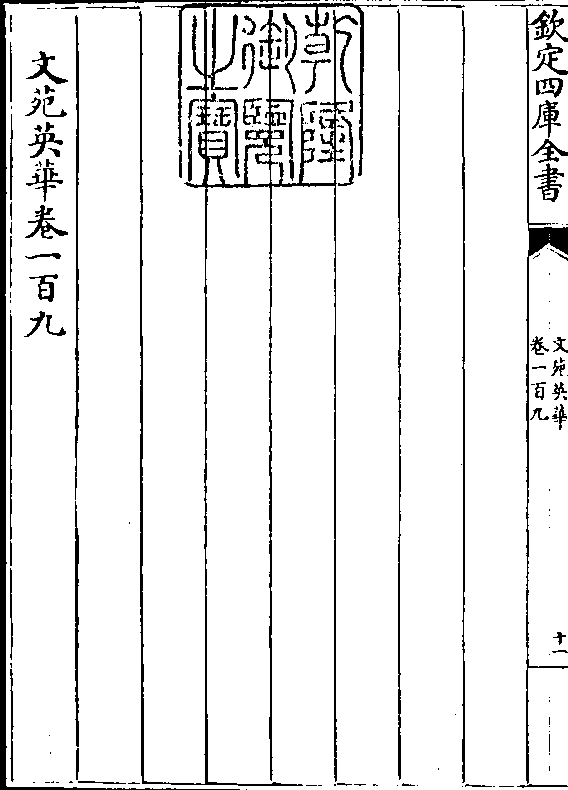 欽定四庫全書
文苑英華
卷一百九
十一
乾隆
御覽
之寶
文苑英華卷一百九